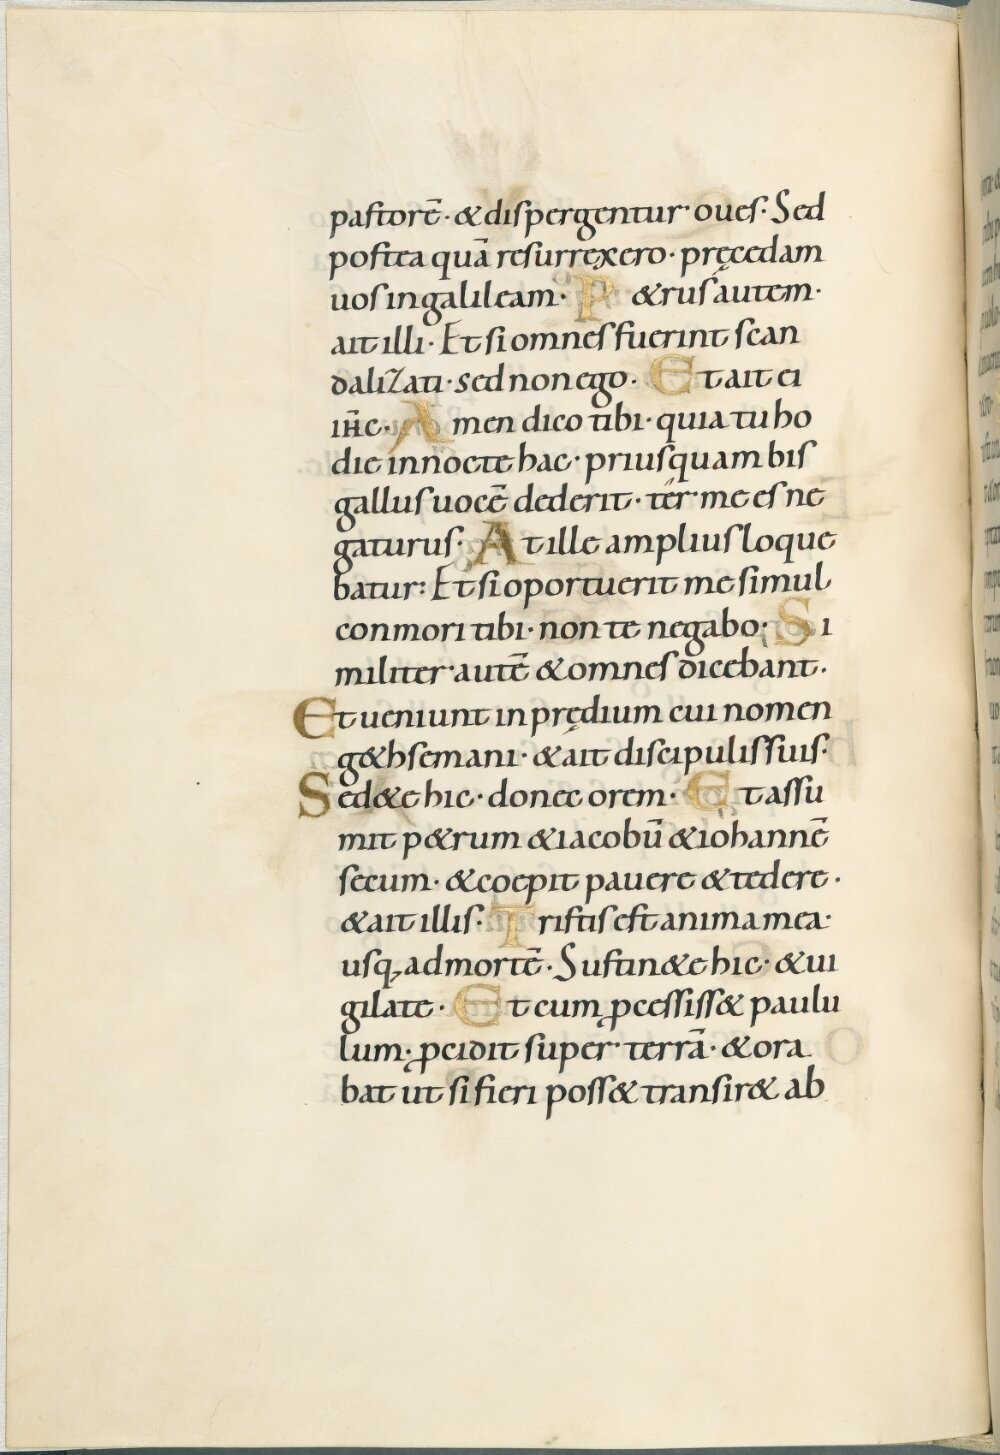 pastorē · & dispergentur · oues · Sed
postea quā resurrexero · pręcedam
uos in galileam · P&rus autem ·
ait illi · Et si omnes fuerint scan
dalizati · sed non ego · Et ait ei
ih̄c · Amen dico tibi · quia tu ho
die in nocte hac · priusquam bis
gallus uocē dederit · ter · me es ne
gaturus · At ille amplius loque
batur : Et si oportuerit me simul
conmori tibi · non te negabo · Si
militer · autē & omnes dicebant ·
Et ueniunt in prędium cui nomen
g&hsemani · & ait discipulis suis ·
Sed&e hic · donec orem · Et assu
mit p&rum & iacobū & iohannē
secum · & coepit pauere & tedere ·
& ait illis · Tristis est anima mea ·
usq; ad mortē · Sustin&e hic · & ui
gilate · Et cum ꝓcessiss& paulu
lum · ꝓcidit super · terrā · & ora
bat ut si fieri poss& transir& ab